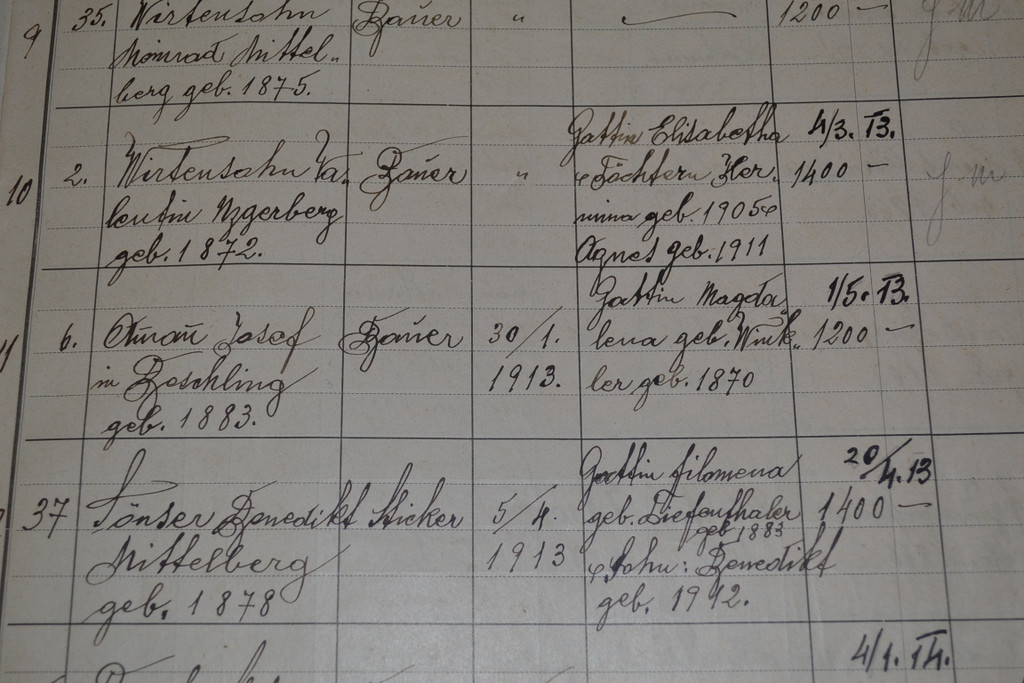 9 35. Wirtensohn Bauer „ 1200 —
Konrad Mittel„
berg geb. 1875.
Gattin Elisabetha 4/3. 13.
10 2. Wirtensohn Va„ Bauer „ & Töchtern Her„ 1400 —
lentin Azgerberg mina geb. 1905 &
geb. 1872. Agnes geb. 1911
Gattin Magda„ 1/5. 13.
6. Amann Josef Bauer 30/1. lena geb. Wink„ 1200 —
in Boschling 1913. ler geb. 1870
geb. 1883.
Gattin Filomena 20/4. 13
37 Tönser Benedikt Sticker 5/4. geb. Tiefenthaler 1400 —
geb 1883
Mittelberg 1913 & Sohn: Benedikt
geb. 1878 geb. 1912.
4/1. 14.